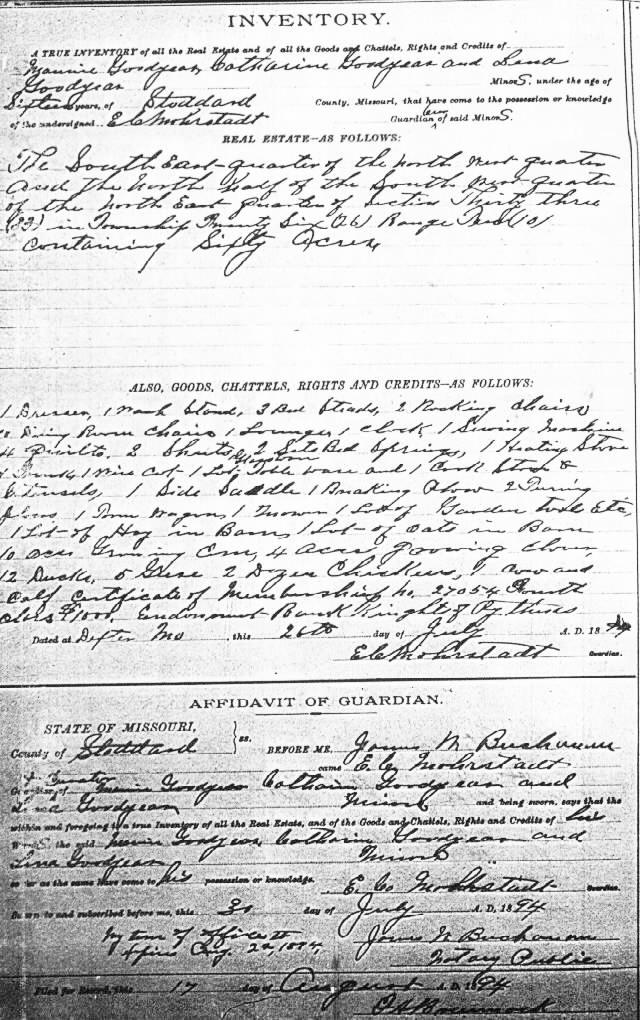 INVENTORY.
A TRUE INVENTORY of all the Real Estate and of all the Goods and Chattels, Rights and Credits of
Maurine Goodyear, Catharine Goodyear and Lena
Goodyear Minors, under the age of
Sixteen years, of Stoddard County, Missouri, that have come to the possession or knowledge
of the undersigned E C Mohrstadt Guardian of said Minors.
REAL ESTATE—AS FOLLOWS:
The South East quarter of the North West quarter
and the North half of the South West quarter
of the North East quarter of Section Thirty three
(33) in Township Twenty Six (26) Range Ten (10)
containing Sixty Acres
ALSO, GOODS, CHATTELS, RIGHTS AND CREDITS—AS FOLLOWS:
1 Dresser, 1 Wash Stand, 3 Bed Steads, 2 Rocking Chairs
Dining Room Chairs 1 Lounge, 1 Clock, 1 Sewing Machine
4 Quilts, 2 Sheets, 2 Sets Bed Springs, 1 Heating Stove
Trunk, 1 Wire Cot 1 Lot Table ware and 1 Cook Stove &
Utinsels, 1 Side Saddle 1 Breaking Plow 2 Turning
Plows 1 Farm Wagon, 1 Mower 1 Lot of Garden tools Etc,
1 Lot of Hay in Barn, 1 Lot of Oats in Barn
10 acres Growing Corn, 4 Acres growing clover,
12 Ducks, 5 Geese 2 Dozen Chickens, 1 Cow and
Calf Certificate of Membership no. 27054 Fourth
class $1000, Endowment Bank Knights of Pythias
Dated at Dexter Mo, this 26th day of July A. D. 1894
E C Mohrstadt Guardian.
AFFIDAVIT OF GUARDIAN.
STATE OF MISSOURI, } ss.
County of Stoddard BEFORE ME, M Buchanan
came E. C. Mohrstadt
Goodyear Catharin Goodyear and
Goodyear Minors and being sworn, says that the
within and foregoing is a true Inventory of all the Real Estate, and of the Goods and Chattels, Rights and Credits of his
Wards the said Goodyear, Catharin Goodyear and
Lena Goodyear Minors
so far as the same have come to his possession or knowledge.
E. C. Mohrstadt Guardian.
Sworn to and subscribed before me, this 30 day of July A. D. 1894
My term of office
Expires Aug. M Buchanan
Notary Public
Filed for Record, this 17 day of August A. D. 1894